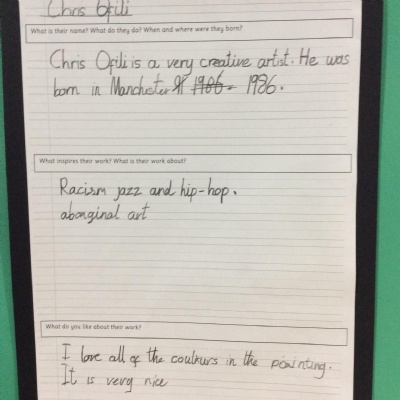 Chris Ofili
What is their name? What do they do? When and where were they born?
Chris Ofili is a very creative artist. He was
born in Manchester 1986. 1986.
What inspires their work? What is their work about?
Racism jazz and hip-hop.
aboriginal art
What do you like about their work?
I love all of the coulkurs in the painting.
It is very nice